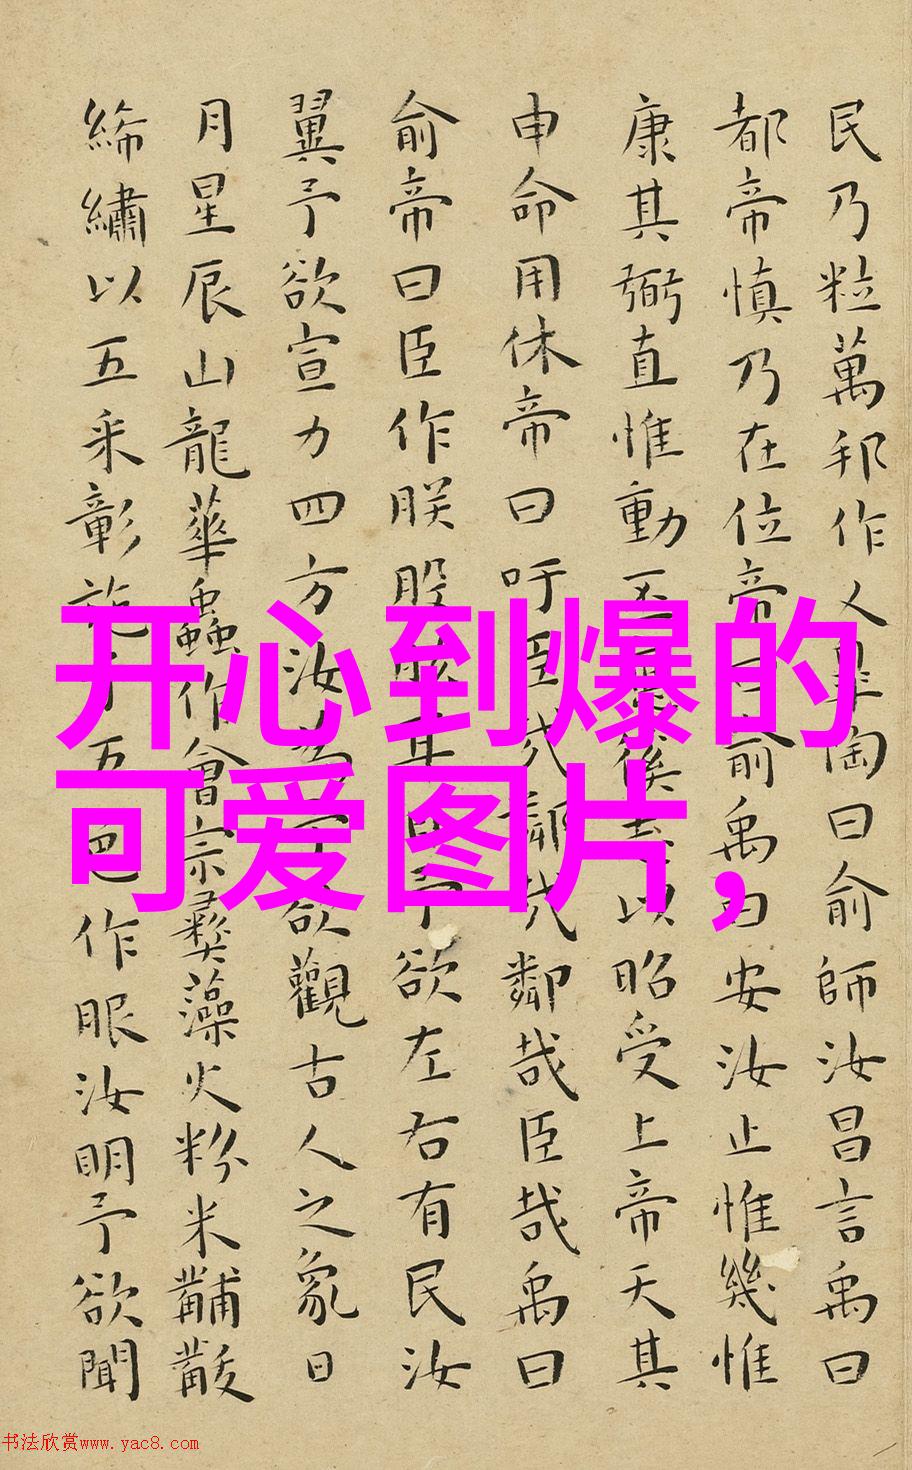 民乃粒萬邦作乂皋陶曰俞師汝昌言禹曰
都帝慎乃在位帝曰俞禹曰安汝止惟幾惟
康其弼直惟動丕應徯志以昭受上帝天其
申命用休帝曰吁臣哉鄰哉鄰哉臣哉禹曰
俞帝曰臣作朕股肱耳目予欲左右有民汝
翼予欲宣力四方汝為予欲觀古人之象日
月星辰山龍華蟲作會宗彝藻火粉米黼黻
絺繡以五采彰施于五色作服汝明予欲聞
开心到爆的
可爱图片，
书法欣赏www.yac8.com